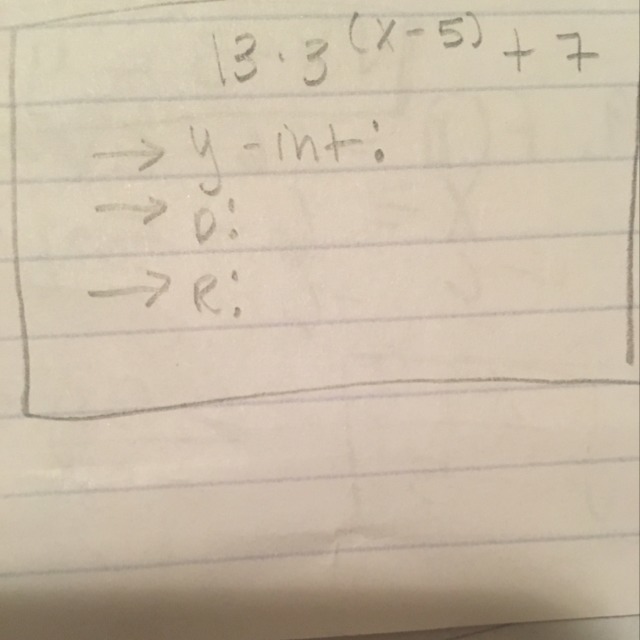 13·3^(x-5) + 7
→ y-int:
→ D:
→ R: